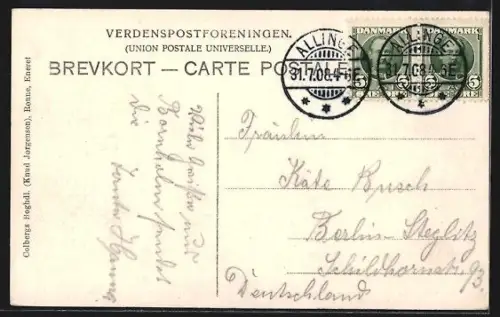 VERDENSPOSTFORENINGEN.
(UNION POSTALE UNIVERSELLE.)
BREVKORT — CARTE POSTALE
ALLINGE
31.7.08.4-5E.
ALLINGE
31.7.08.4-5E.
DANMARK
5 ØRE 5
DANMARK
5 ØRE 5
Colbergs Boghdl. (Knud Jorgensen), Ronne, Eneret
Grüße
aus
Bornholm sendet
Dir
Tante
Fräulein
Käte Busch
Berlin-Steglitz
Schildhornstr. 93.
Deutschland